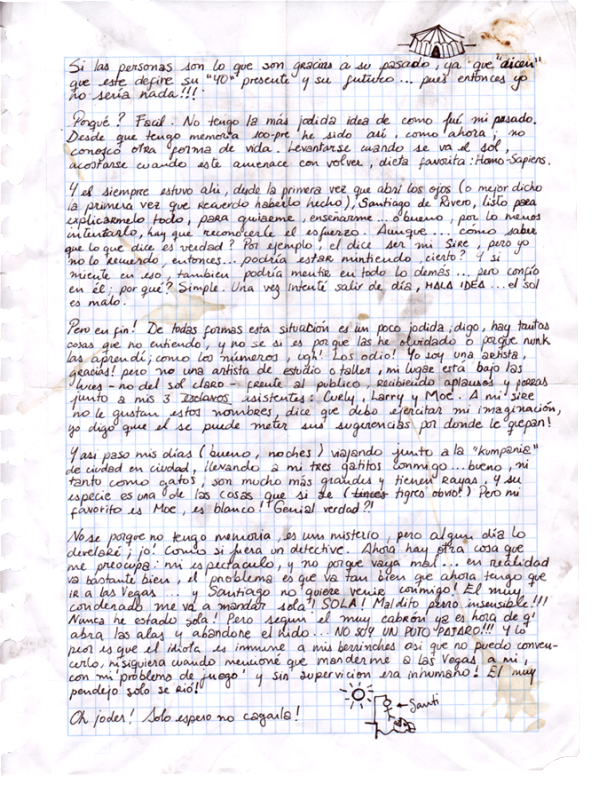 Si las personas son lo que son gracias a su pasado, ya que "dicen"
que este define su "YO" presente y su futuro... pues entonces yo
no sería nada!!!
Porqué? Facil. No tengo la más jodida idea de como fué mi pasado.
Desde que tengo memoria 100-pre he sido así, como ahora; no
conozco otra forma de vida. Levantarse cuando se va el sol,
acostarse cuando este amenace con volver, dieta favorita: Homo-Sapiens.
Y el siempre estuvo ahi, desde la primera vez que abrí los ojos (o mejor dicho
la primera vez que recuerdo haberlo hecho), Santiago de Rivero, listo para
explicarmelo todo, para guiarme, enseñarme... o bueno, por lo menos
intentarlo, hay que reconocerle el esfuerzo. Aunque... cómo saber
que lo que dice es verdad? Por ejemplo, el dice ser mi Sire, pero yo
no lo recuerdo, entonces... podría estar mintiendo, cierto? Y si
miente en eso, tambien podría mentir en todo lo demás... pero confío
en él; por qué? Simple. Una vez intenté salir de día, MALA IDEA... el sol
es malo.
Pero en fin! De todas formas esta situación es un poco jodida; digo, hay tantas
cosas que no entiendo, y no se si es porque las he olvidado o porque nunk
las aprendí; como los números, ugh! Los odio! Yo soy una artista,
gracias! pero no una artista de estudio o taller, mi lugar está bajo las
luces - no del sol claro - frente al publico, recibiendo aplausos y poras
junto a mis 3 esclavos asistentes: Curly, Larry y Moe. A mi sire
no le gustan estos nombres, dice que debo ejercitar mi imaginación,
yo digo que el se puede meter sus sugerencias por donde le quepan!
Y asi paso mis días (bueno, noches) viajando junto a la "kumpania"
de ciudad en ciudad, llevando a mis tres gatitos conmigo... bueno, ni
tanto como gatos, son mucho más grandes y tienen rayas, y su
especie es una de las cosas que si se (tigres obvio!) Pero mi
favorito es Moe, es blanco! Genial verdad?!
No se porque no tengo memoria, es un misterio, pero algun día lo
develaré; jo! Como si fuera un detective. Ahora hay otra cosa que
me preocupa: mi espectaculo, y no porque vaya mal... en realidad
va bastante bien, el problema es que va tan bien que ahora tengo que
ir a las Vegas... y Santiago no quiere venir conmigo! El muy
condenado me va a mandar sola! SOLA! Maldito perro insensible!!!
Nunca he estado sola! Pero segun el muy cabrón ya es hora de q'
abra las alas y abandone el nido... NO SOY UN PUTO PAJARO!!! Y lo
peor es que el idiota es inmune a mis berrinches asi que no puedo conven-
cerlo, ni siquiera cuando mencioné que mandarme a las Vegas a mi,
con mi 'problema de juego' y sin supervicion era inhumano! El muy
pendejo solo se rió!
← Santi
Oh joder! Solo espero no cagarla!